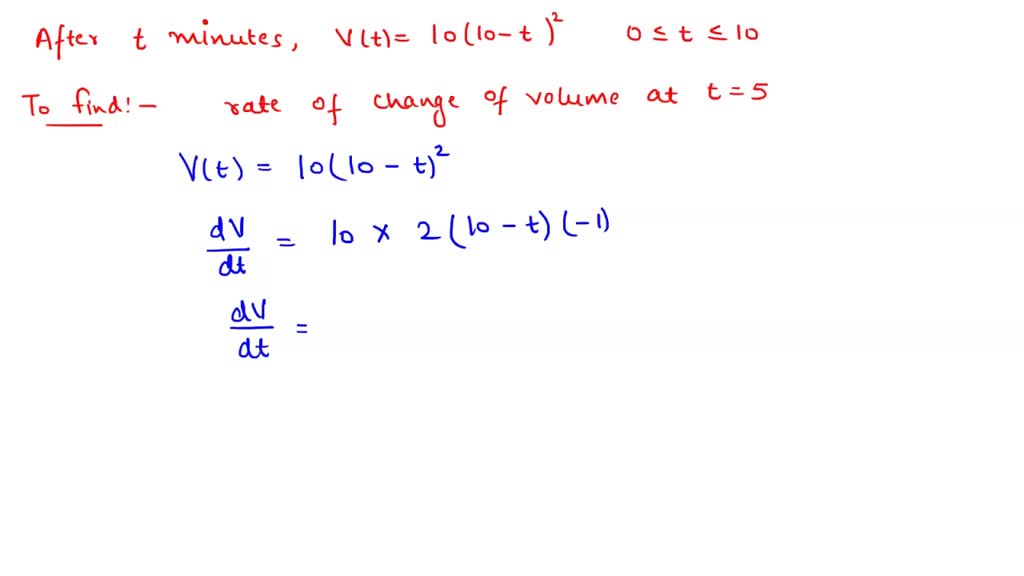 After t minutes, V(t) = 10(10-t)² 0 ≤ t ≤ 10
To find:- rate of change of volume at t = 5
V(t) = 10(10 - t)²
dV/dt = 10 × 2(10 - t)(-1)
dV/dt =